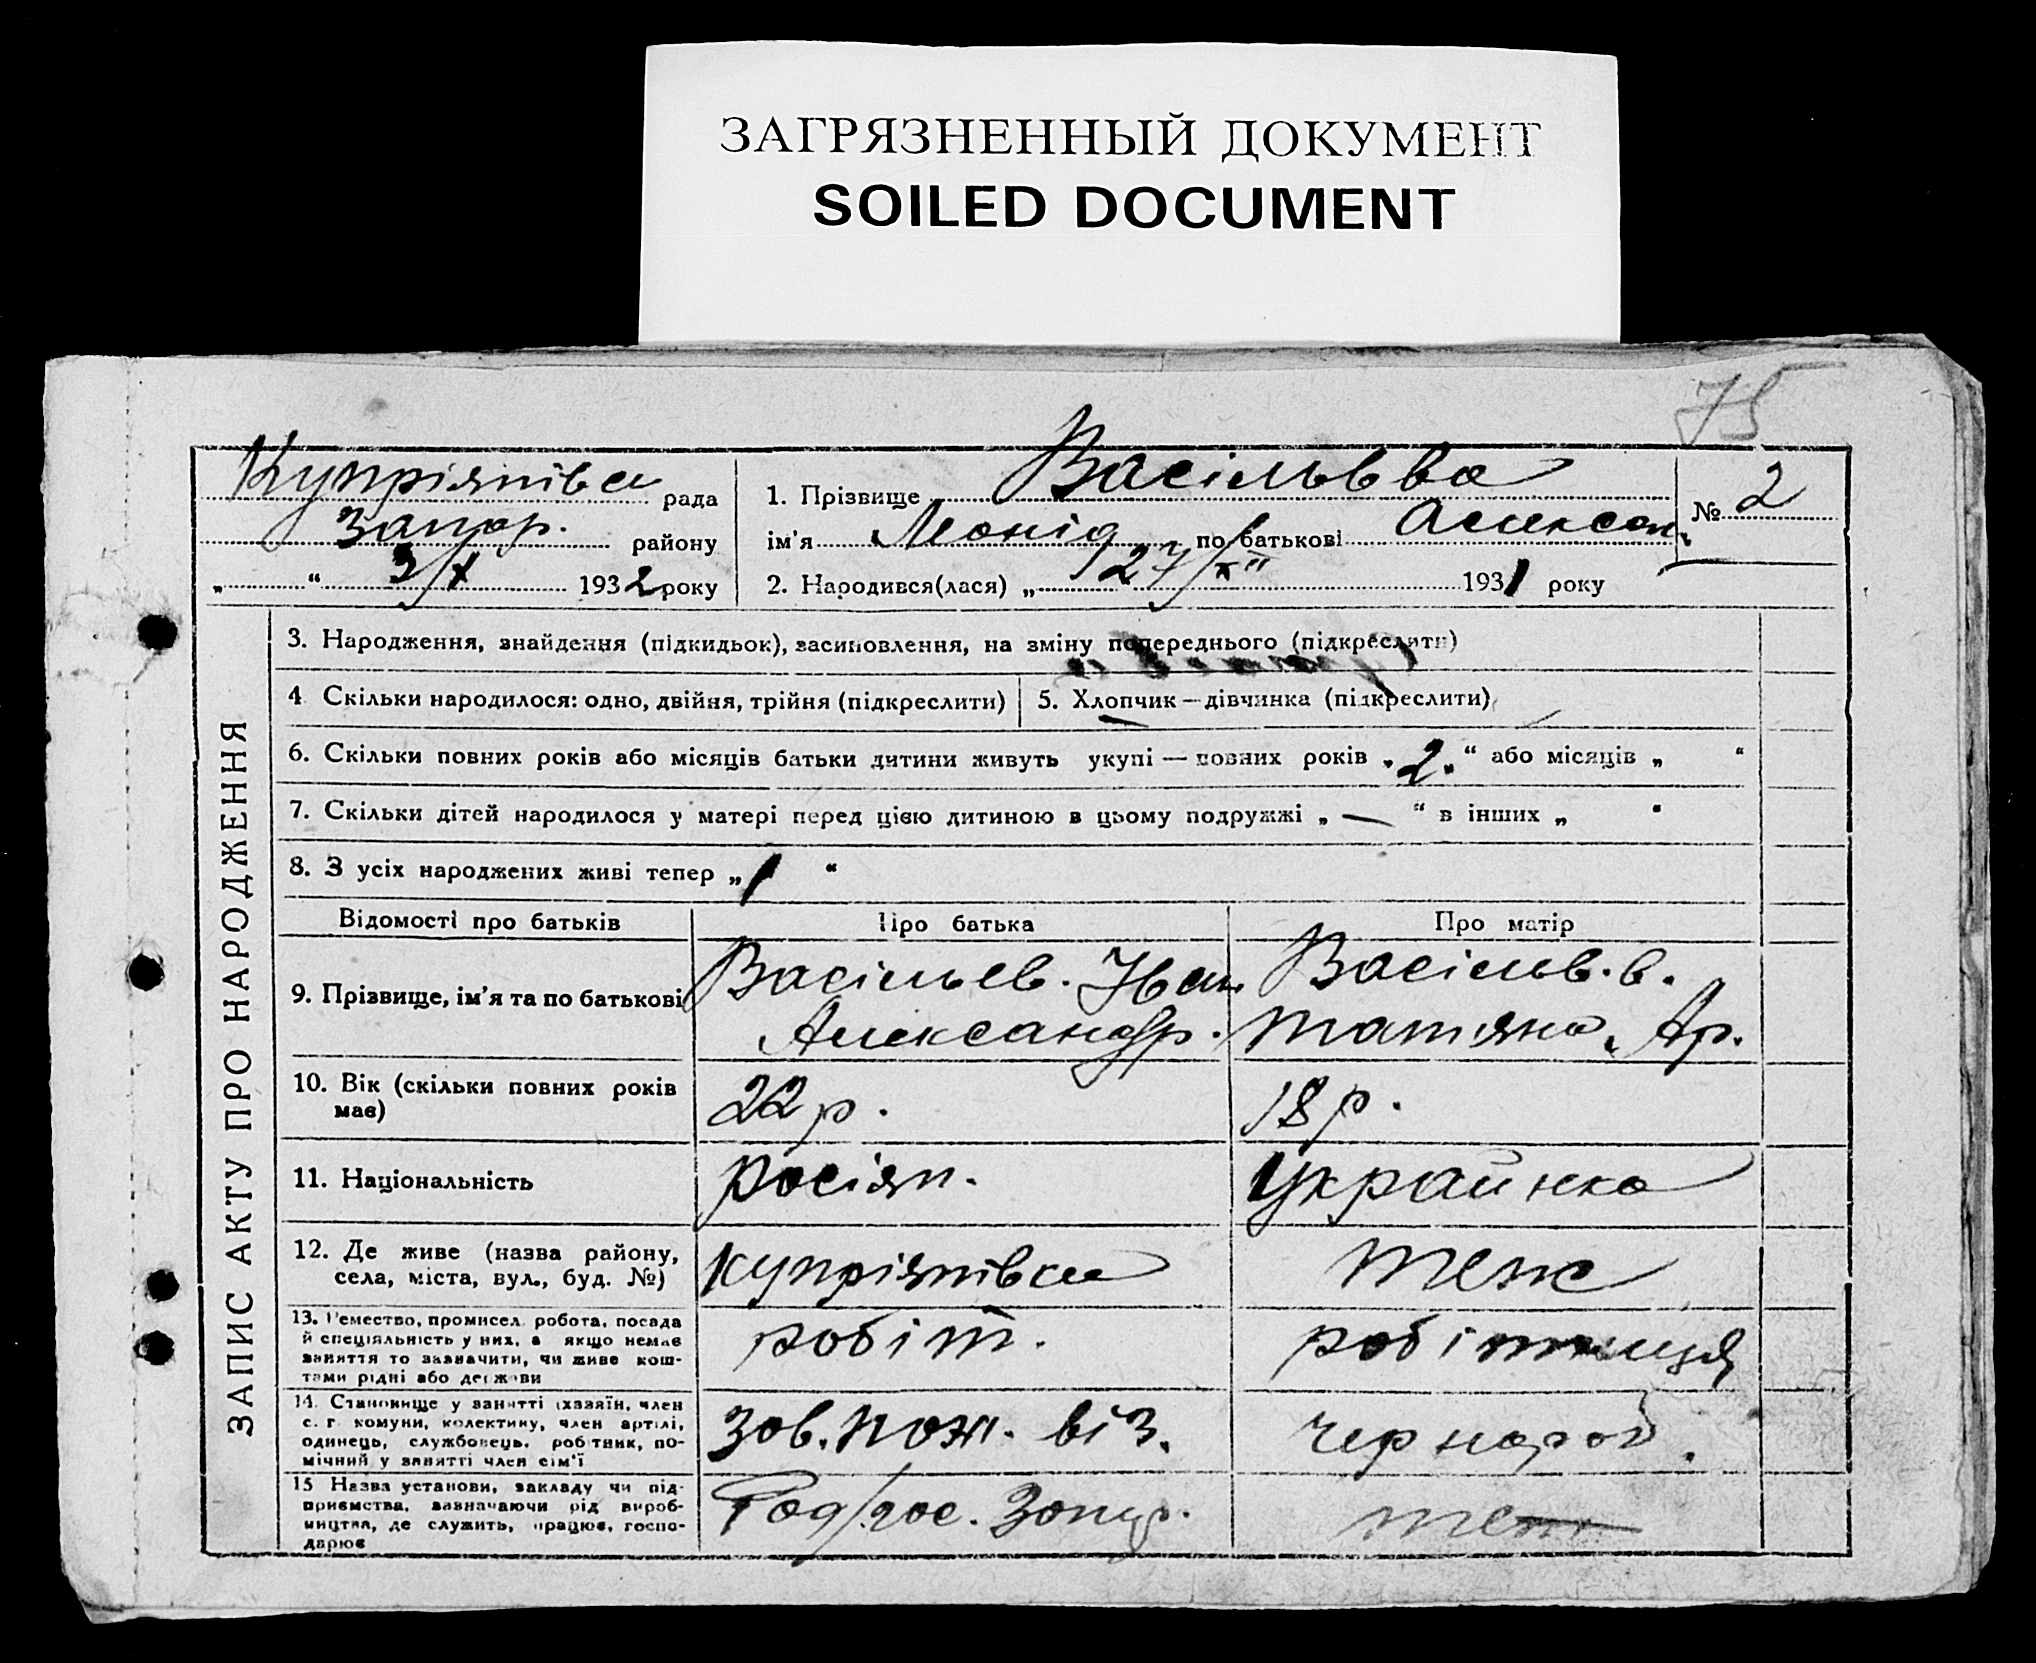 ЗАГРЯЗНЕННЫЙ ДОКУМЕНТ
SOILED DOCUMENT
75
Купріянівка рада
Запор. району
„ “ 3/X 1932 року
1. Прізвище Васільвва
ім'я Леонід по батькові Алексан.
2. Народився(лася) „ 27/XII 1931 року
№ 2
ЗАПИС АКТУ ПРО НАРОДЖЕННЯ
3. Народження, знайдення (підкидьок), засиновлення, на зміну попереднього (підкреслити)
4 Скільки народилося: одно, двійня, трійня (підкреслити)
5. Хлопчик — дівчинка (підкреслити)
6. Скільки повних років або місяців батьки дитини живуть укупі — повних років „2“ або місяців „ “
7. Скільки дітей народилося у матері перед цією дитиною в цьому подружжі „ — “ в інших „ “
8. З усіх народжених живі тепер „ 1 “
Відомості про батьків
Про батька
Про матір
9. Прізвище, ім'я та по батькові
Васільев. Іван
Александр.
Васільв.в.
Татяна. Ар.
10. Вік (скільки повних років
має)
22 р.
18 р.
11. Національність
росіян.
Украинка
12. Де живе (назва району,
села, міста, вул., буд. №)
Купріянівка
теж
13. Ремество, промисел, робота, посада
й спеціяльність у них, а якщо немає
заняття то зазначити, чи живе кош-
тами рідні або держави
робіт.
робітниця
14. Становище у занятті (хазяїн, член
с. г. комуни, колективу, член артілі,
одинець, службовець, робітник, по-
мічний у занятті член сім'ї
Зов. пож. віз.
чернороб.
15 Назва установи, закладу чи під-
приємства, зазначаючи рід вироб-
ництва, де служить, працює, госпо-
дарює
Рад/гос. Запор.
теж